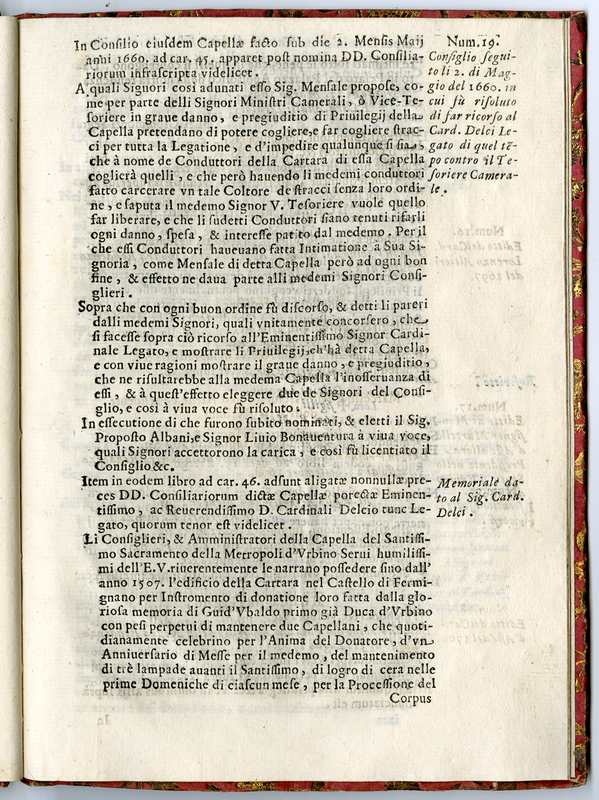 In Consilio eiusdem Capellæ facto sub die 2. Mensis Maij
anni 1660. ad car. 45. apparet post nomina DD. Consilia-
riorum infrascripta videlicet.
A quali Signori così adunati esso Sig. Mensale propose, co-
me per parte delli Signori Ministri Camerali, ò Vice-Te-
soriere in graue danno, e pregiuditio di Priuilegij della
Capella pretendano di potere cogliere, e far cogliere strac-
ci per tutta la Legatione, e d'impedire qualunque si sia,
che à nome de Conduttori della Cartara di essa Capella
coglierà quelli, e che però hauendo li medemi conduttori
fatto carcerare vn tale Coltore de stracci senza loro ordi-
ne, e saputa il medemo Signor V. Tesoriere vuole quello
far liberare, e che li sudetti Conduttori siano tenuti rifarli
ogni danno, spesa, & interesse patito dal medemo. Per il
che essi Conduttori haueuano fatta Intimatione à Sua Si-
gnoria, come Mensale di detta Capella però ad ogni bon
fine, & effetto ne daua parte alli medemi Signori Consi-
glieri.
Sopra che con ogni buon ordine fù discorso, & detti li pareri
dalli medemi Signori, quali vnitamente concorsero, che
si facesse sopra ciò ricorso all'Eminentissimo Signor Cardi-
nale Legato, e mostrare li Priuilegij, ch'hà detta Capella,
e con viue ragioni mostrare il graue danno, e pregiuditio,
che ne risultarebbe alla medema Capella l'inosseruanza di
essi, & à quest'effetto eleggere due de Signori del Consi-
glio, e così à viua voce fù risoluto.
In essecutione di che furono subito nominati, & eletti il Sig.
Proposto Albani, e Signor Liuio Bonauentura à viua voce,
quali Signori accettorono la carica, e così fù licentiato il
Consiglio &c.
Item in eodem libro ad car. 46. adsunt aligatæ nonnullæ pre-
ces DD. Consiliariorum dictæ Capellæ porectæ Eminen-
tissimo, ac Reuerendissimo D. Cardinali Delcio tunc Le-
gato, quorum tenor est videlicet.
Li Consiglieri, & Amministratori della Capella del Santissi-
mo Sacramento della Metropoli d'Vrbino Serui humilissi-
mi dell'E.V. riuerentemente le narrano possedere sino dall'
anno 1507. l'edificio della Cartara nel Castello di Fermi-
gnano per Instromento di donatione loro fatta dalla glo-
riosa memoria di Guid'Vbaldo primo già Duca d'Vrbino
con pesi perpetui di mantenere due Capellani, che quoti-
dianamente celebrino per l'Anima del Donatore, d'vn
Anniuersario di Messe per il medemo, del mantenimento
di trè lampade auanti il Santissimo, di logro di cera nelle
prime Domeniche di ciascun mese, per la Processione del
Corpus
Num. 19.
Consiglio segui-
to li 2. di Mag-
gio del 1660. in
cui fù risoluto
di far ricorso al
Card. Delci Le-
gato di quel tẽ-
po contro il Te-
soriere Camera-
le.
Memoriale da-
to al Sig. Card.
Delci.